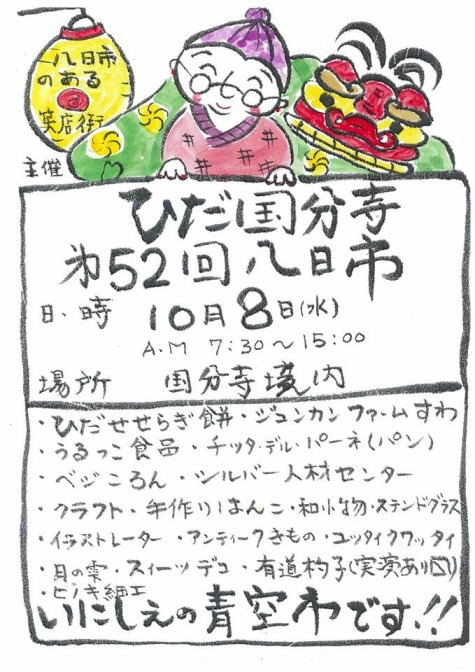 八日市
のある
笑店街
主催
ひだ国分寺
第52回八日市
日・時 10月8日(水)
A.M 7:30〜15:00
場所 国分寺境内
・ひだせせらぎ餅・ジュンカンファームすわ
・うるっこ食品・チッタ・デル・パーネ(パン)
・ベジころん・シルバー人材センター
・クラフト・手作りはんこ・和小物・ステンドグラス
・イラストレーター・アンティークきもの・ユッタイクワッタイ
・月の雫・スイーツデコ・有道杓子(実演あり〼)
・ヒノキ細工
いにしえの青空市です!!